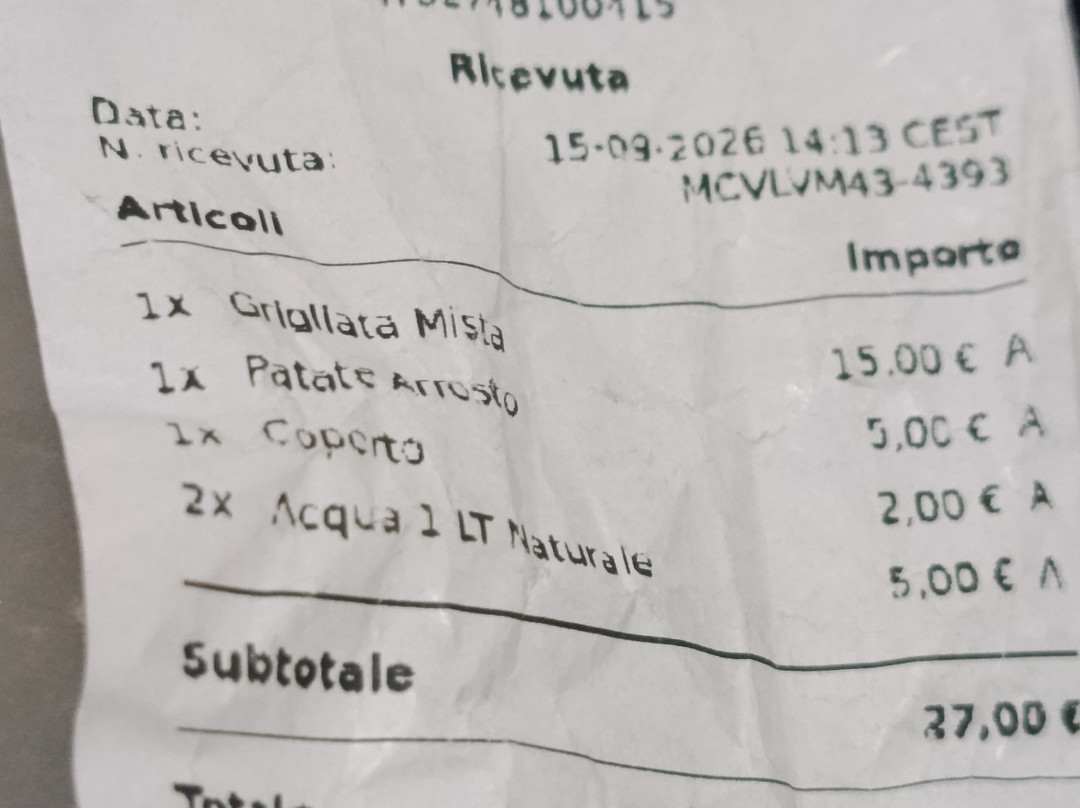 Ricevuta
Data: 15-09-2026 14:13 CEST
N. ricevuta: MCVLVM43-4393
Articoli Importo
1x Grigliata Mista 15.00 € A
1x Patate Arrosto 5,00 € A
1x Coperto 2,00 € A
2x Acqua 1 LT Naturale 5,00 € A
Subtotale 27,00 €
Totale